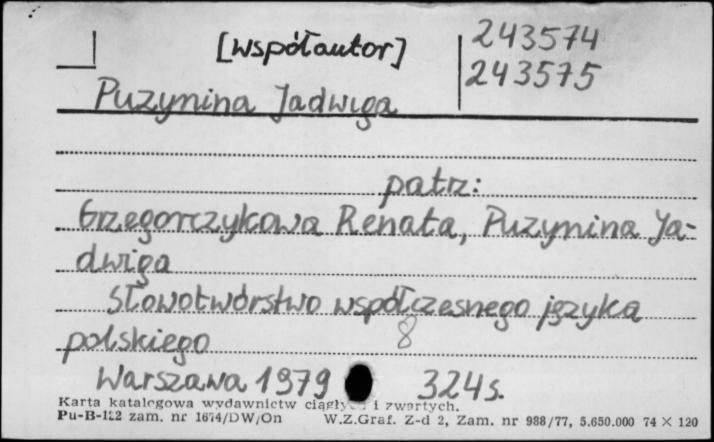 [współautor]
243574
243575
Puzynina Jadwiga
patrz:
Grzegorczykowa Renata, Puzynina Ja-
dwiga
Słowotwórstwo współczesnego języka
polskiego
8
Warszawa 1979 324 s.
Karta katalogowa wydawnictw ciągłych i zwartych.
Pu-B-112 zam. nr 1674/DW/On W.Z.Graf. Z-d 2, Zam. nr 988/77, 5.650.000 74 × 120